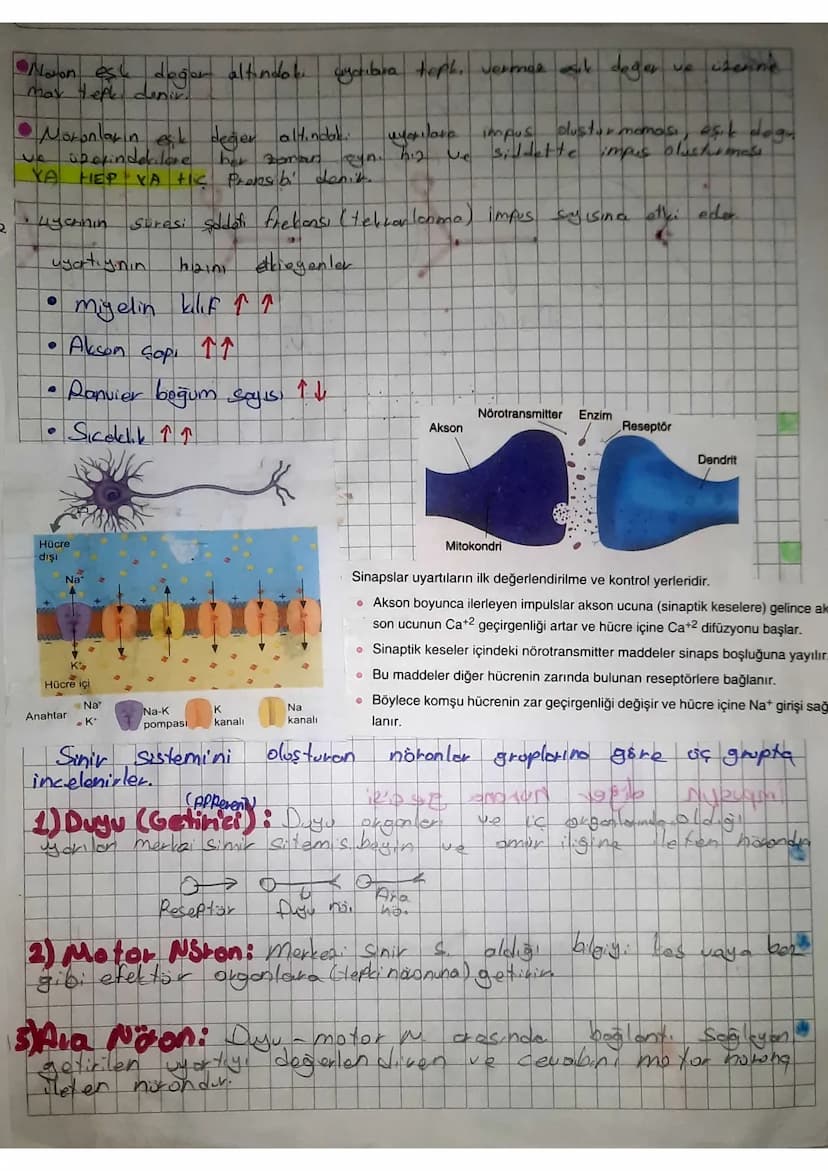 Nöron eşik değer altındaki uyarılara tepki vermez eşik değer ve üzerine
max tepki denir.
Nöronların eşik değer altındaki uyarılara impus oluşturmaması, eşik değ.
ve üzerindekilere her zaman aynı hız ve şiddette impus oluşturması
YA HEP YA HİÇ Prensibi denir.
Uyarının süresi şiddeti frekansı (tekrarlanma) impus sayısına etki eder
uyartıynın hızını etkieyenler
• miyelin kılıf ↑ ↑
• Akson çapı ↑↑
• Ranvier boğum sayısı ↑↓
• Sıcaklık ↑↑
Nörotransmitter Enzim
Akson Reseptör
Dendrit
Mitokondri
Hücre
dışı
Na⁺
K⁺
Hücre içi
Anahtar Na⁺
K⁺
Na-K
pompası
K
kanalı
Na
kanalı
Sinapslar uyartıların ilk değerlendirilme ve kontrol yerleridir.
• Akson boyunca ilerleyen impulslar akson ucuna (sinaptik keselere) gelince ak
son ucunun Ca⁺² geçirgenliği artar ve hücre içine Ca⁺² difüzyonu başlar.
• Sinaptik keseler içindeki nörotransmitter maddeler sinaps boşluğuna yayılır.
• Bu maddeler diğer hücrenin zarında bulunan reseptörlere bağlanır.
• Böylece komşu hücrenin zar geçirgenliği değişir ve hücre içine Na⁺ girişi sağ
lanır.
Sinir sistemini oluşturan nöronlar gruplarına göre üç grupta
incelenirler.
(APPeren)
1) Duyu (Getirici): Duyu organları ve iç organlarında aldığı
uyarıları merkezi sinir sitemis beyin ve omur iliğine ileten nörondur
Reseptör Duyu nö. Ara
nö.
2) Motor Nöron: Merkezi sinir s. aldığı bilgiyi kas vaya bez
gibi efektör organlara (tepki) getirir
3) Ara Nöron: Duyu-motor N arasında bağlantı sağlayan
getirilen uyartıyı değerlendiren ve cevabını motor nörona
ileten nörondur.